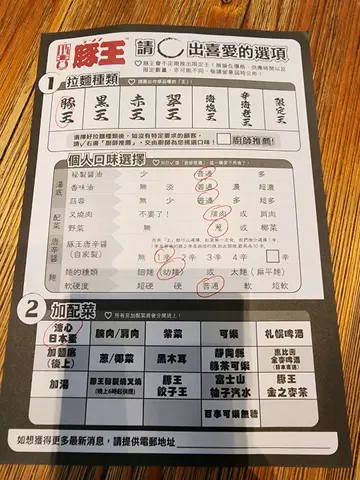 豚王 請 出喜愛的選項
豚王會不定期推出限定王！無論在價格、供應時間以至
限定數量，亦可能不同，敬請留意區特公布！
1 拉麵種類
豚王 黑王 赤王 翠王 海鹽王 辛海老王 限定王
選擇好拉麵種類後，如沒有特定要求的顧客，
請✓右邊「廚師推薦」，交由廚師為您挑選口味！ 廚師推薦！
個人口味選擇
湯底 秘製醬油 少 普通 多
香味油 無 淡 普通 濃 超濃
蒜蓉 無 少 普通 多 超多
配菜 叉燒肉 不要了！ 腩肉 或 肩肉
野菜 無 葱 或 椰菜
唐辛醬 豚王唐辛醬
(自家製) 無 1辛 2辛 3辛 4辛
麵 麵的種類 細麵 (幼麵) 或 太麵 (扁平麵)
軟硬度 超硬 硬 普通 軟 超軟
2 加配菜
所有另加配菜將會分開上！
溏心
日本蛋 腩肉/肩肉 紫菜 可樂 札幌啤酒
加麵底
(後上) 葱/椰菜 黑木耳 靜岡縣
綠茶可樂 惠比壽
金麥啤酒
加湯 豚王秘製燒叉燒
(晚上6時起供應) 豚王
餃子王 富士山
柚子汽水 豚王
金之麥茶
百事可樂無糖
如想獲得更多最新消息，請提供電郵地址